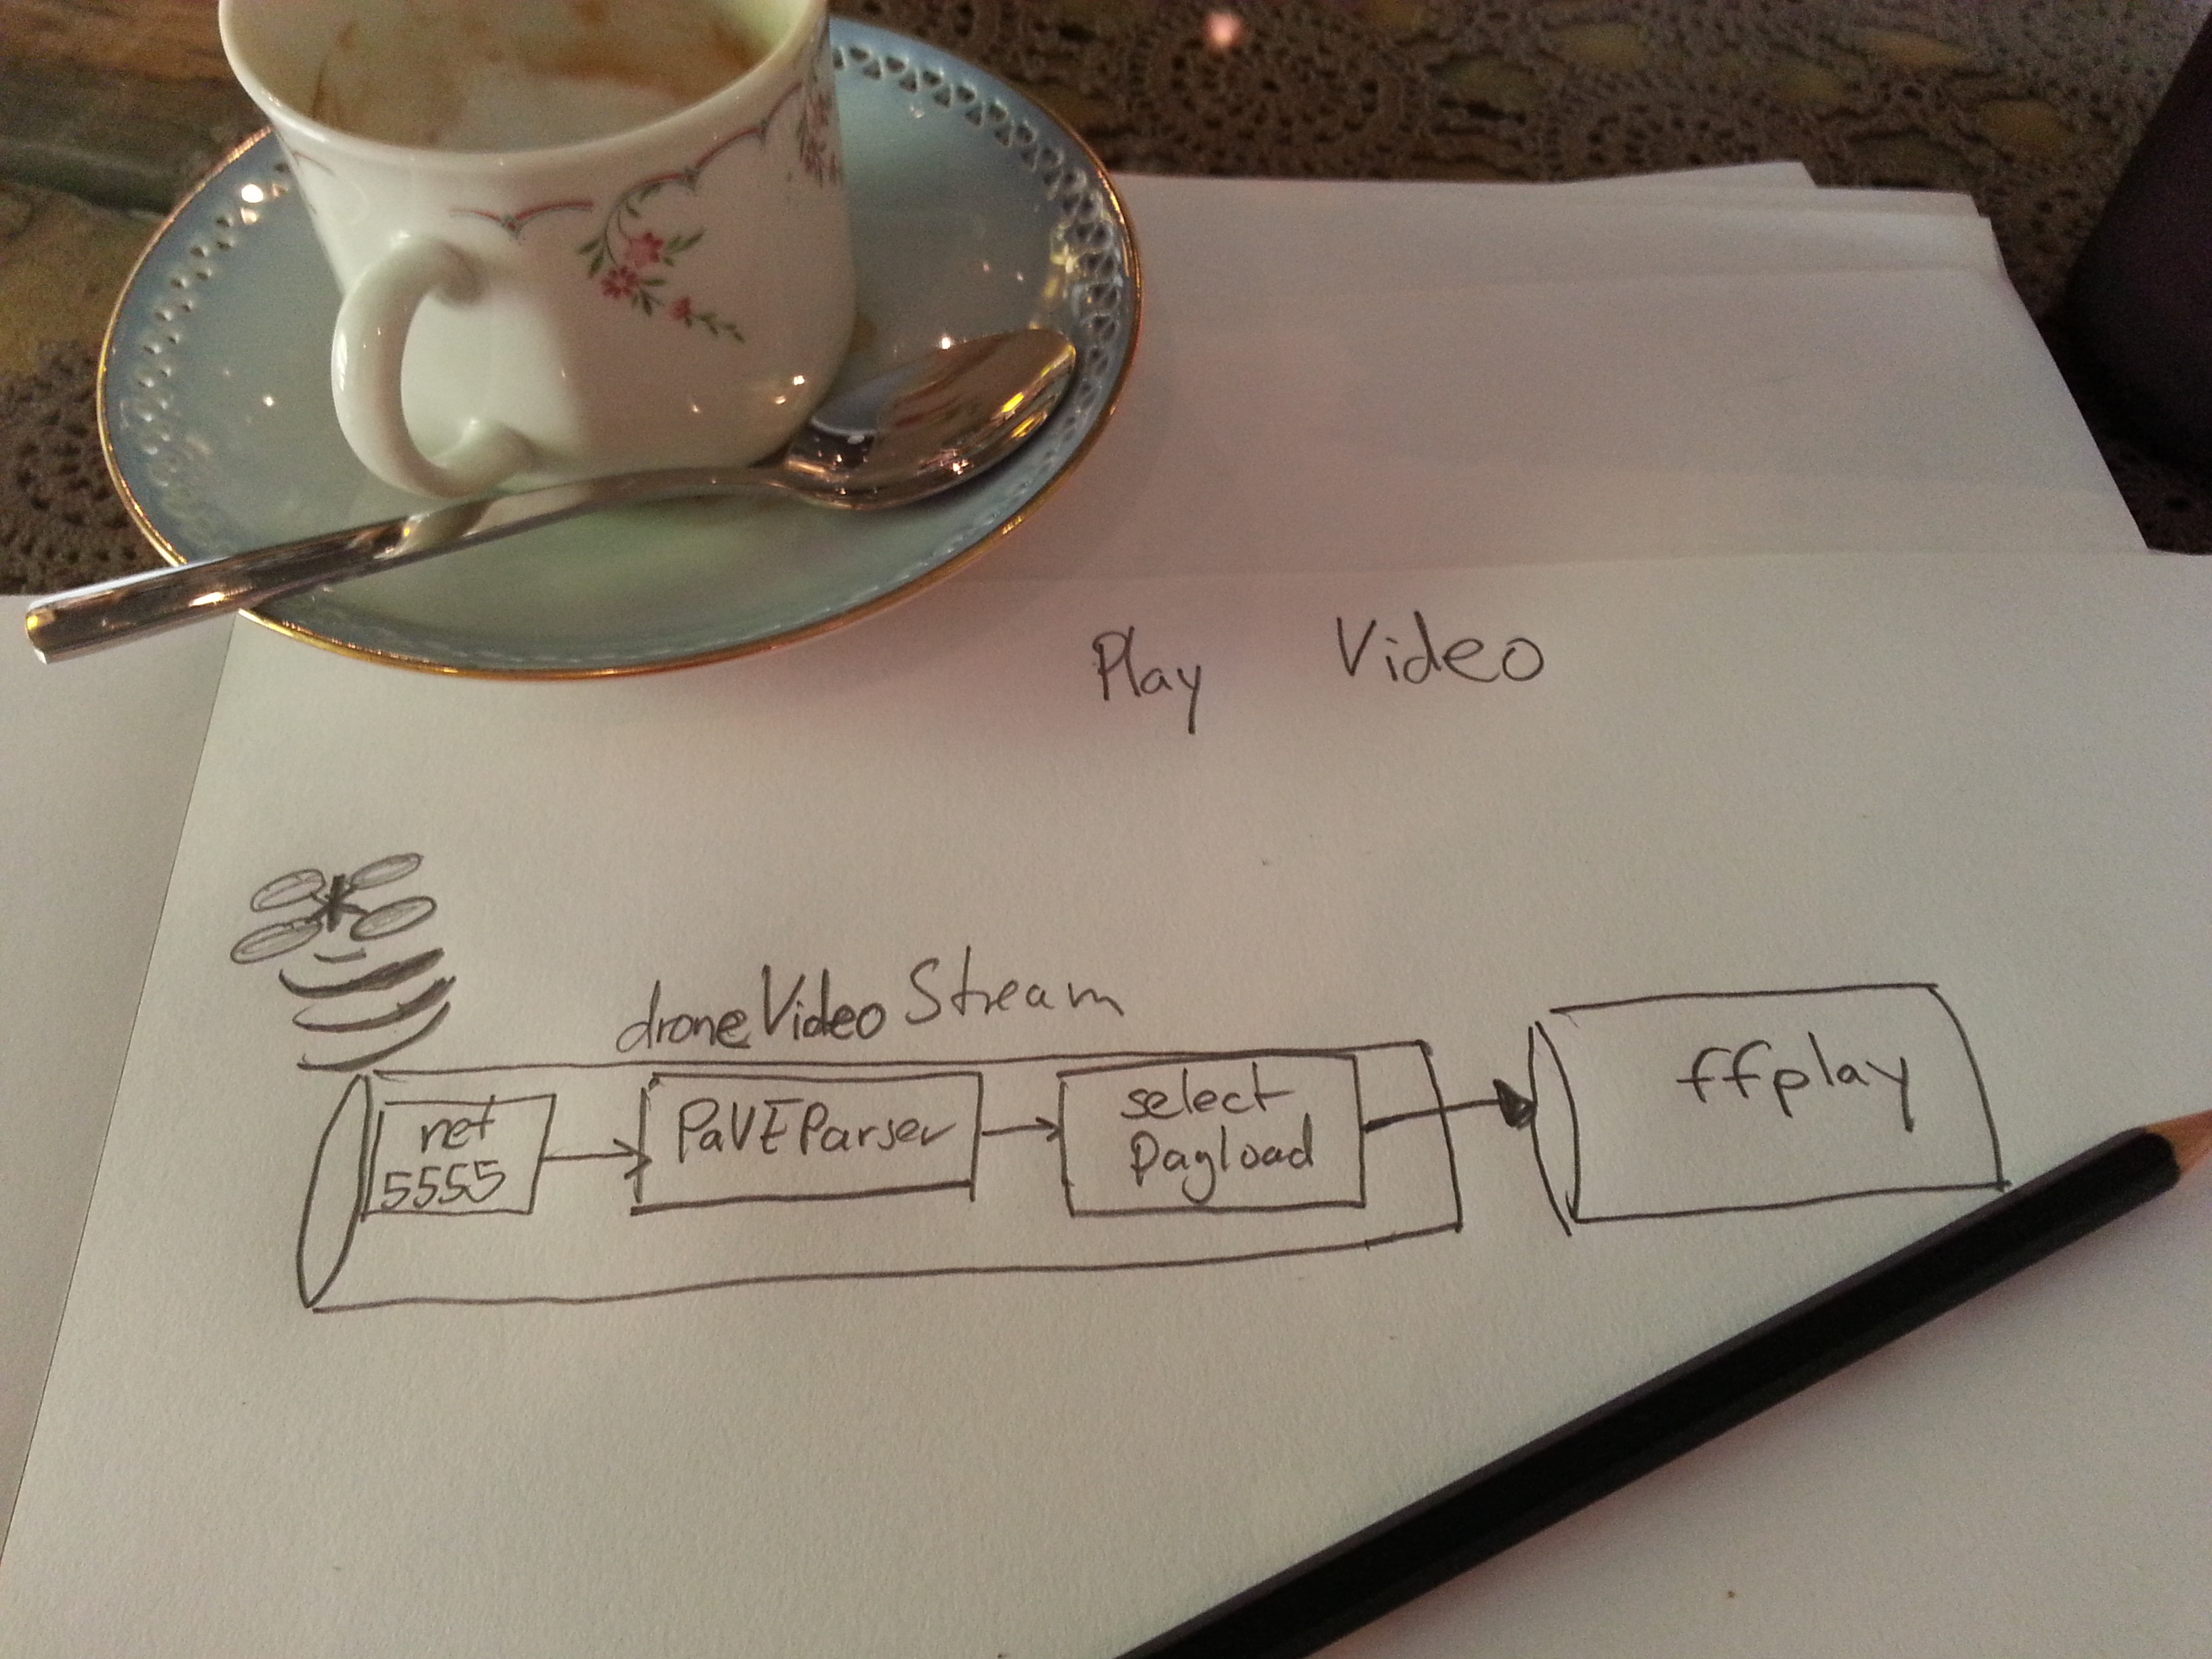 Play Video
droneVideoStream
net
5555
PaVEParser
select
Payload
ffplay